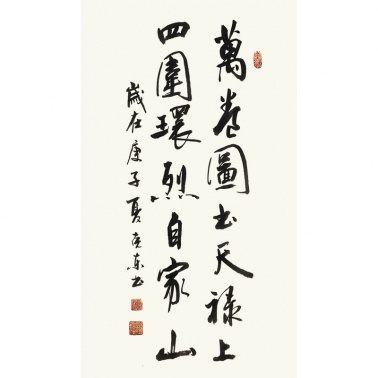 萬卷圖書天禄上
四圍環烈自家山
歲在庚子夏 东書